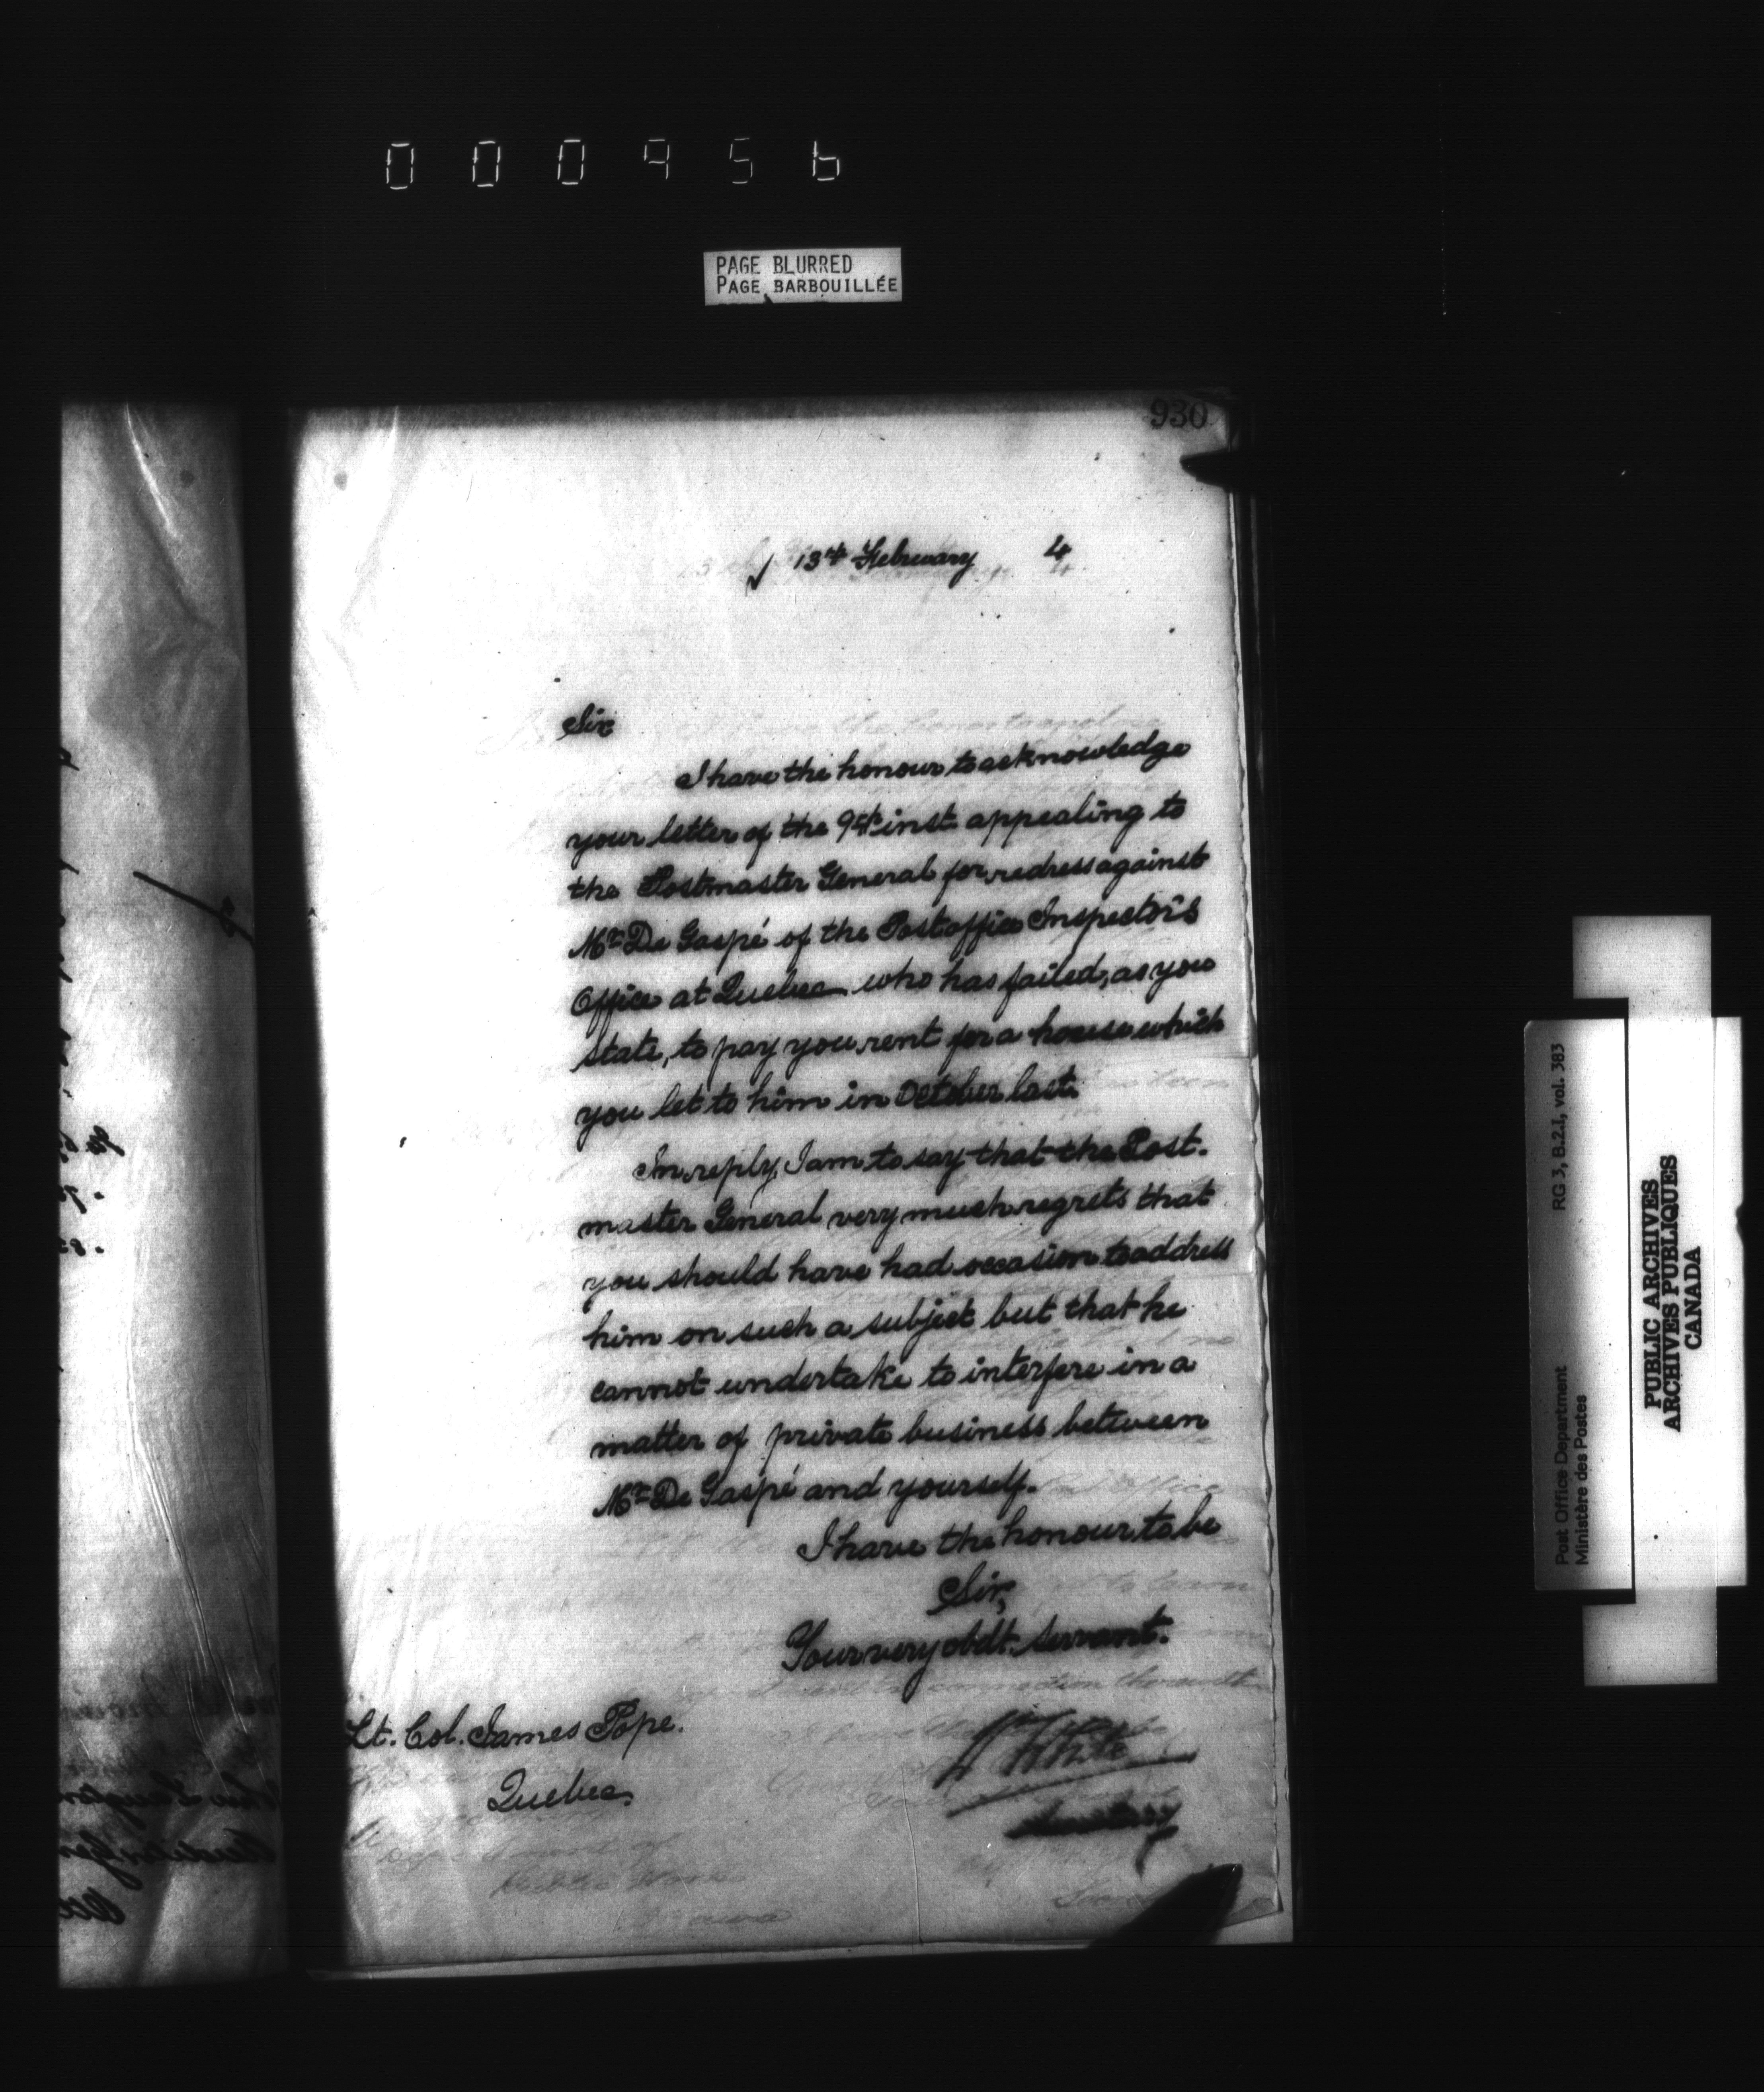 000956
PAGE BLURRED
PAGE BARBOUILLÉE
930
13th February 4
Sir
I have the honour to acknowledge
your letter of the 9th inst. appealing to
the Postmaster General for redress against
Mr. De Gaspé of the Postoffice Inspector's
Office at Quebec who has failed, as you
state, to pay you rent for a house which
you let to him in October last.
In reply, I am to say that the Post-
master General very much regrets that
you should have had occasion to address
him on such a subject but that he
cannot undertake to interfere in a
matter of private business between
Mr. De Gaspé and yourself.
I have the honour to be
Sir,
Your very obdt. servant.
White
Secretary
Lt. Col. James Pope.
Quebec.
Post Office Department
Ministère des Postes
RG 3, B.2.I, vol. 383
PUBLIC ARCHIVES
ARCHIVES PUBLIQUES
CANADA